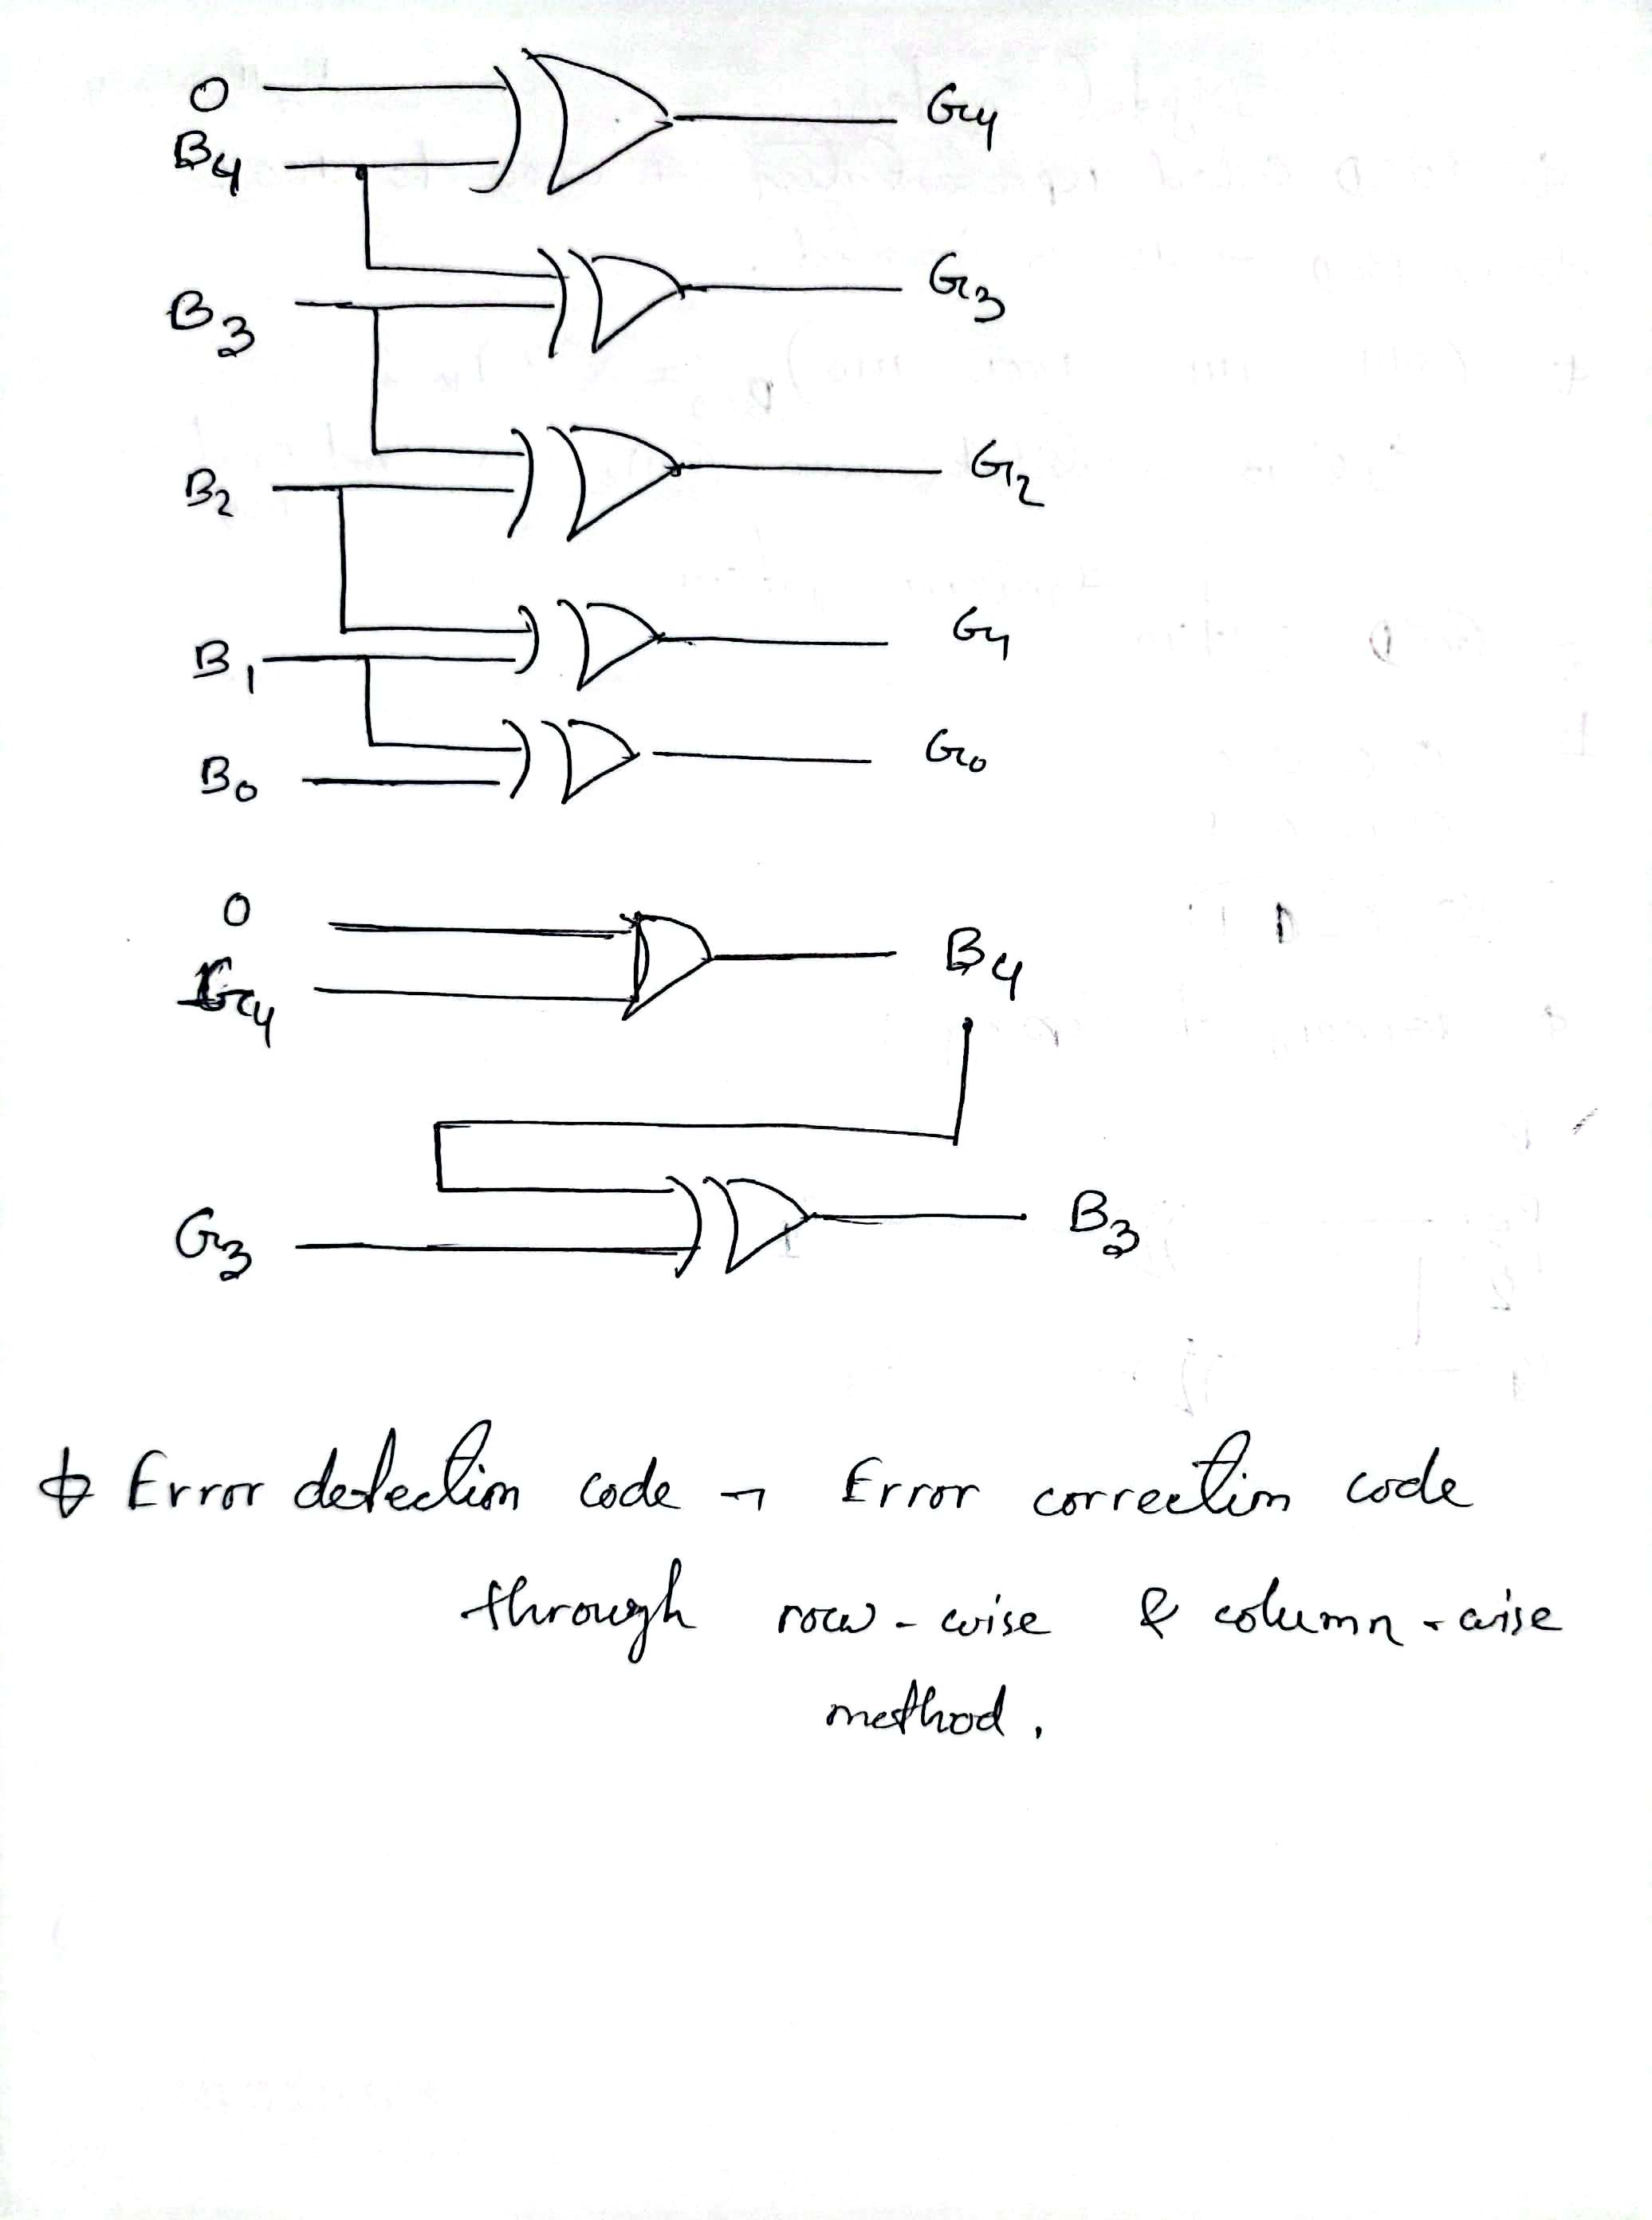 0
B4
G4
B3
G3
B2
G2
B1
G1
B0
G0
0
G4
B4
G3
B3
Error detection code → Error correction code
through row-wise & column-wise
method.